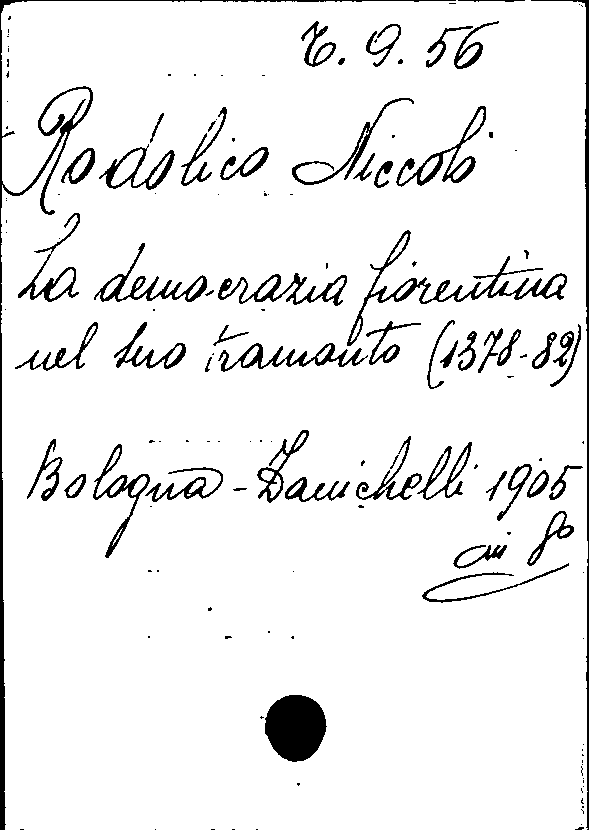 T. 9. 56
Rodolico Niccolò
La democrazia fiorentina
nel suo tramonto (1378-82)
Bologna - Zanichelli 1905
in 8º